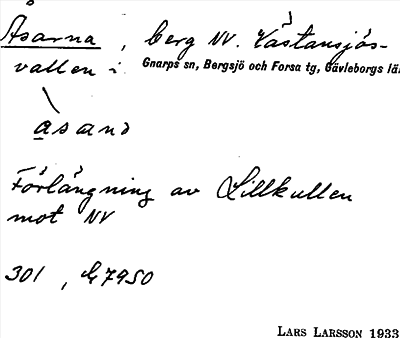 Åsarna, berg NV. Västansjös-
vallen i Gnarps sn, Bergsjö och Forsa tg, Gävleborgs lä
Förlängning av Lillkullen
mot NV
301,
LARS LARSSON 1933